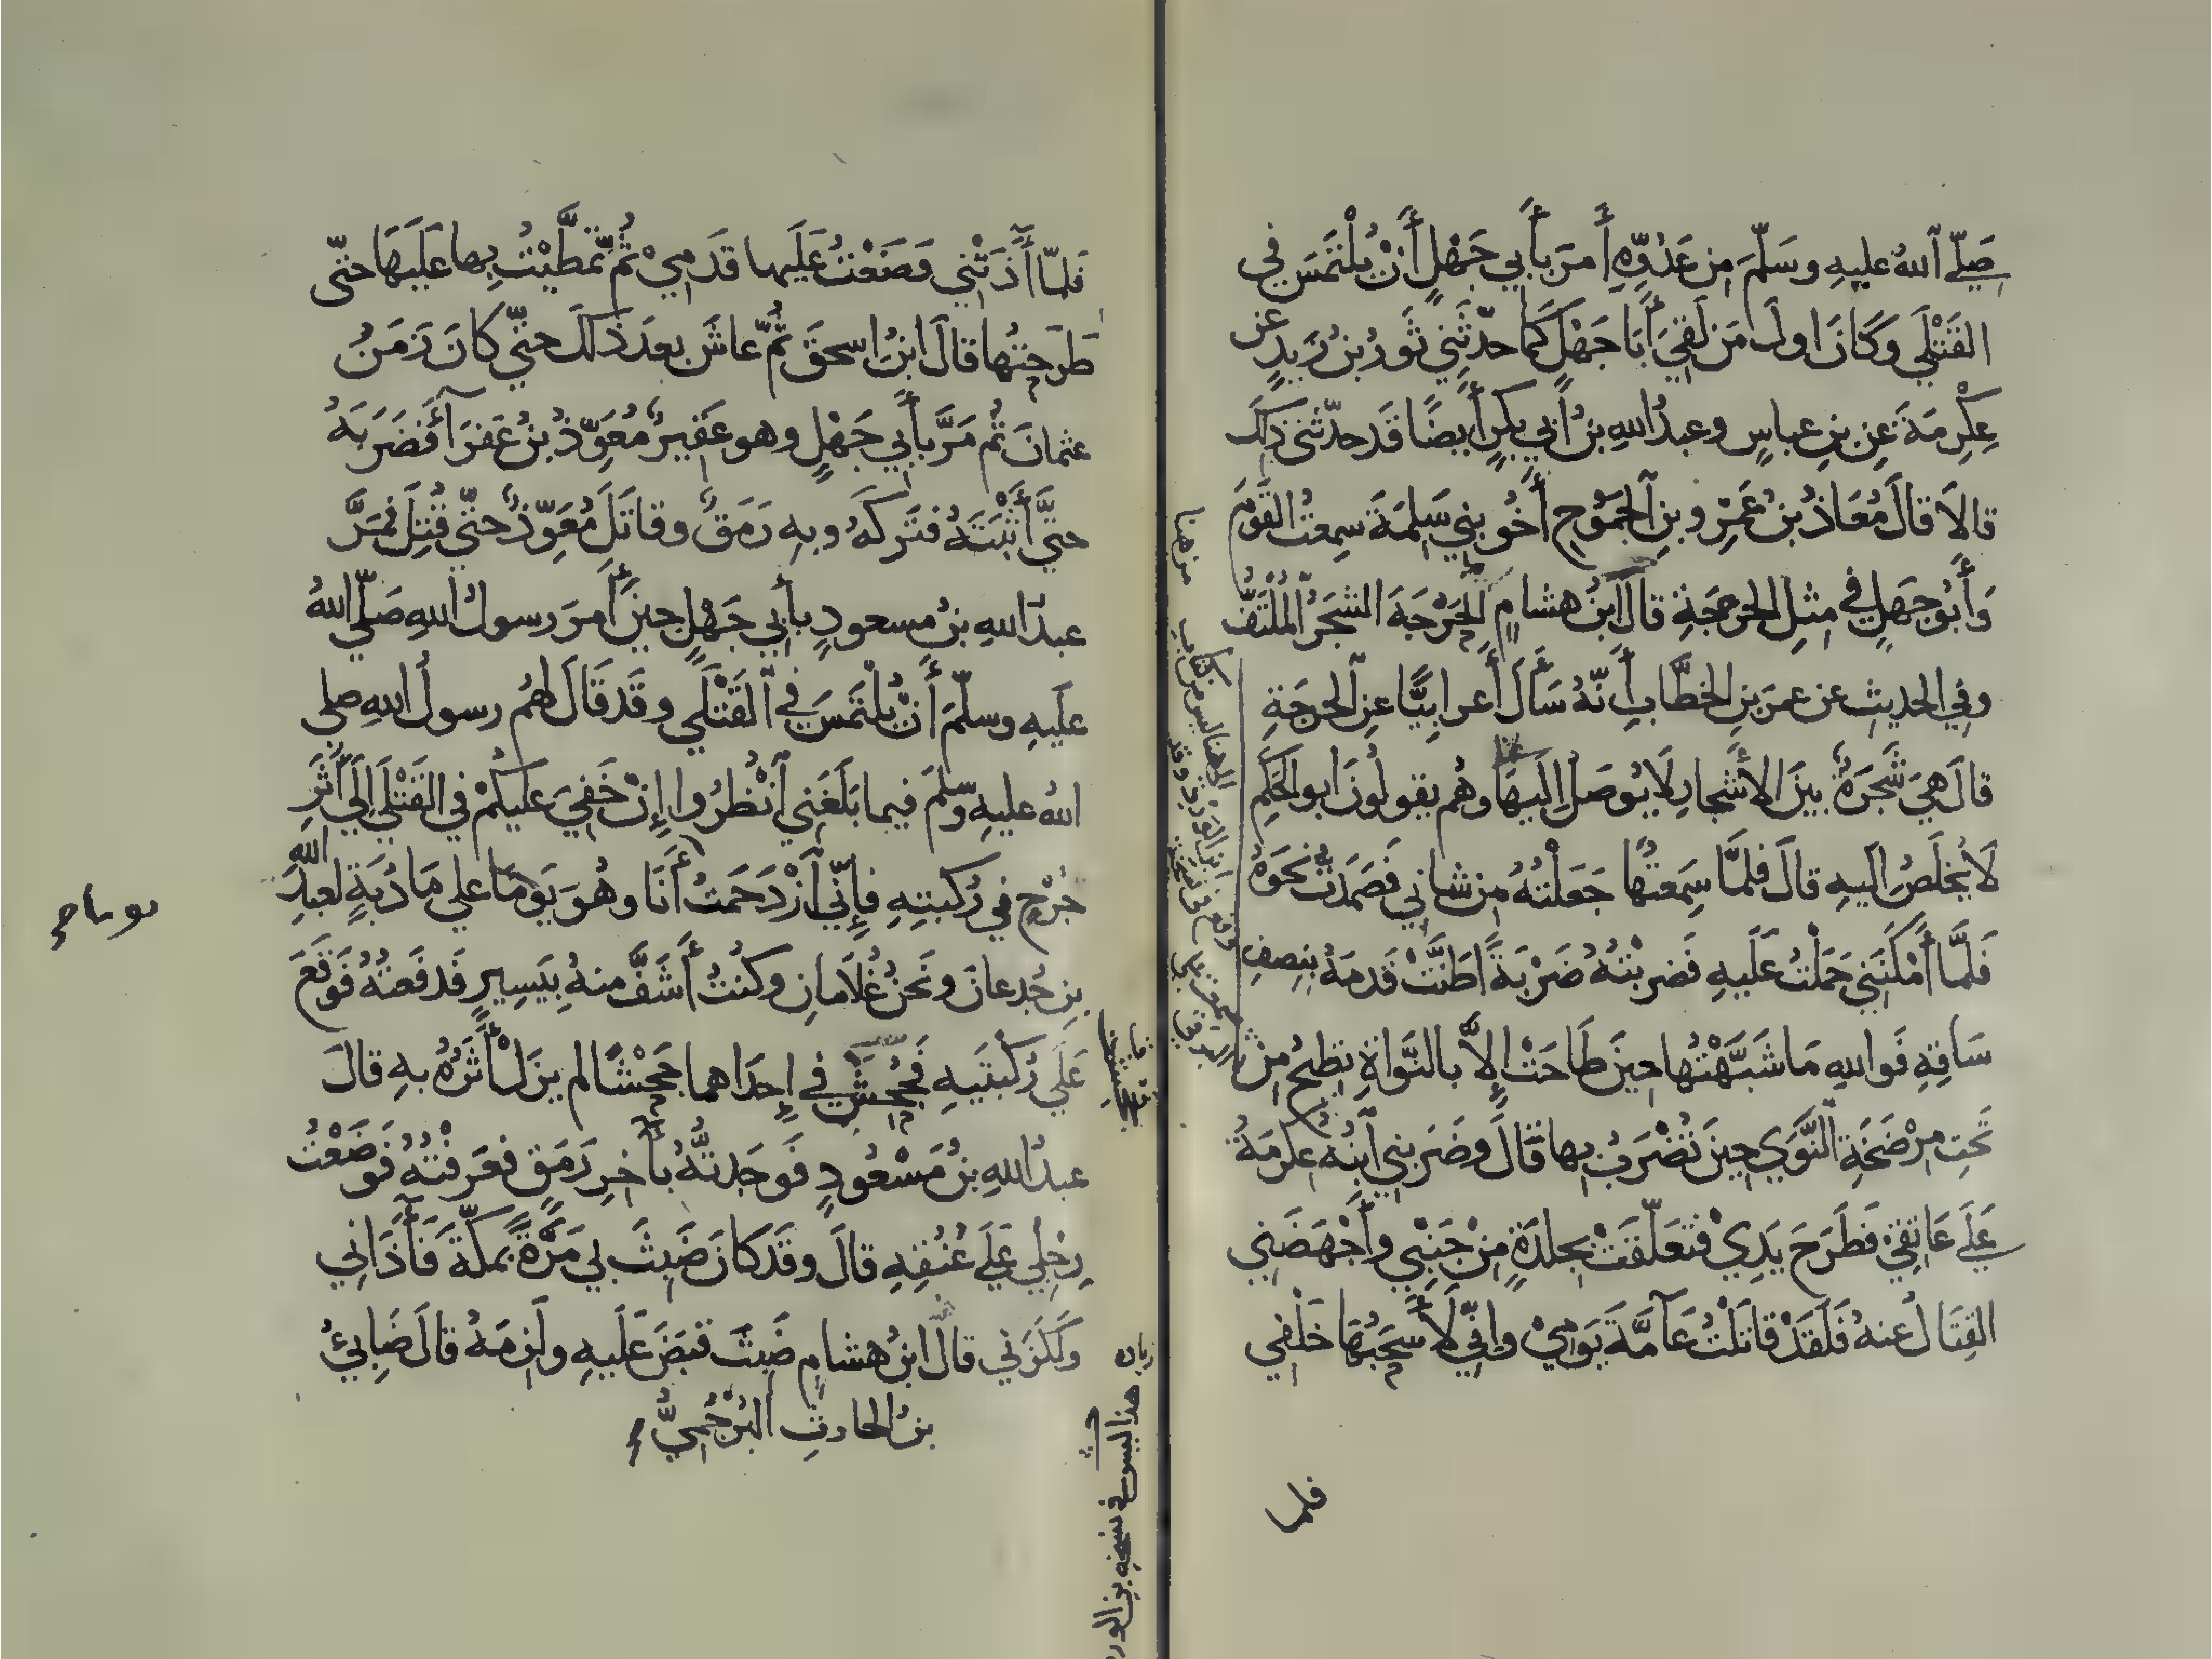 صَلّى اللهُ عليهِ وسَلَّمَ مِن عَدُوِّهِ أَمَرَ بأَبي جَهْلٍ أَنْ يُلْتَمَسَ في
القَتْلَى وَكَانَ اولَ مَن لَقِيَ أَبَا جَهْلٍ كَمَا حدّثَنِي ثَورُ بنُ زَيدٍ عن
عِكْرِمَةَ عَنِ بنِ عباسٍ وعبدُ اللهِ بنُ أَبي بكرٍ أَيضًا قَد حدّثنى ذلك
قالَا قالَ مُعَاذُ بنُ عَمْرِو بنِ الجَمُوحِ أَخُو بنِي سَلِمَةَ سمِعتُ القَومَ
وَأَبُو جَهلٍ في مِثلِ الحرجَةِ قالَ ابنُ هشامٍ الحَرَجَةَ الشجَرُ المُلْتَفُّ
وفي الحديثِ عن عمرَ بنِ الخطَّابِ أَنّهُ سَأَلَ أَعرابيًّا عنِ الحرجَةِ
قالَ هيَ شَجَرَةٌ بينَ الأَشجارِ لَا يُوصَلُ إليهَا وهُم يقولُونَ ابو الحَكمِ
لَا يُخلَصُ اليهِ قالَ فلمَّا سَمِعتُها جَعَلْتُهُ مِن شاني فَصَمَدتُ نَحوَهُ
فَلَمَّا أَمْكَنَنِي حَمَلْتُ عَلَيهِ فَضربْتُهُ ضَرْبَةً اطَنَّتْ قَدمَهُ بنصفِ
سَاقِهِ فَواللهِ مَا شَبَّهْتُها حينَ طَاحَتْ إِلاَّ بالنَّواةِ تطِيحُ مِنْ
تَحتِ مِرْضَخَةِ النَّوَى حِينَ تُضْرَبُ بها قَالَ وضَرَبنِي ابنُهُ عِكرمَةُ
عَلَى عَاتِقِي فَطَرَحَ يَدِيْ فتَعَلَّقَتْ بجلدَةٍ مِنْ جَنْبِي وأَجْهَضَنِي
القِتَالُ عنهُ فَلَقَدْ قاتَلْتُ عَامَّةَ يَومِيْ وانِّي لَأَسْحَبُهَا خَلْفِي
فلما
فَلمّا أَذَتْنِي وَضَعْتُ عَلَيها قَدَمِيْ ثُمَّ تَمَطَّيْتُ بِها عَلَيهَا حتّى
طَرَحتُها قالَ ابنُ اسحقَ ثُمَّ عاشَ بعدَ ذلكَ حتّى كانَ زَمَنُ
عثمانَ ثُم مَرَّ بأَبي جَهْلٍ وهو عَقِيرٌ مُعَوِّذُ بنُ عَفرَآءَ فَضَرَبَهُ
حتَّى أَثْبَتَهُ فتَركَهُ وبِهِ رَمَقٌ وقاتَلَ مُعَوِّذٌ حتّى قُتِلَ فمَرَّ
عبدُ اللهِ بنُ مسعودٍ بأَبي جَهْلٍ حينَ أَمرَ رسولُ اللهِ صَلّى اللهُ
عَلَيهِ وسلّمَ أَنْ يُلْتَمَسَ في القَتْلَى وقَد قَالَ لهُم رسولُ اللهِ صلى
اللهُ عليهِ وسلّمَ فيما بَلَغَنِي انْظُرُوا إِنْ خَفِيَ عليكُمْ في القَتْلَى إلَى أَثَرِ
جُرْحٍ في رُكبتِهِ فإِنّي ازْدَحَمتُ أَنَا وهُوَ يَومًا على مَادُبَةٍ لعبدِ الله
بنِ جُدعانَ ونَحنُ غُلَامانِ وكُنْتُ أَشَفَّ منهُ بِيَسِيرٍ فَدفَعتُهُ فَوَقَعَ
عَلَى رُكْبتَيهِ فَجُحِشَ في إِحدَاهما جَحْشًا لم يزَلْ أَثَرُهُ بهِ قالَ
عبدُ اللهِ بنُ مَسْعُودٍ فَوجَدتُّهُ بأَخِرِ رَمَقٍ فعَرفْتُهُ فَوضَعْتُ
رِجْلِي عَلَى عُنُقِهِ قالَ وقَد كانَ ضَبَثَ بي مَرَّةً بمكّةَ فَأَذَانِي
وَلَكَزَنِي قالَ ابنُ هشامٍ ضَبَثَ قبَضَ عَلَيهِ ولَزِمَهُ قالَ ضَابِئُ
بنُ الحارثِ البُرْجُمِيُّ
هذا ليس في نسخه بن الورد